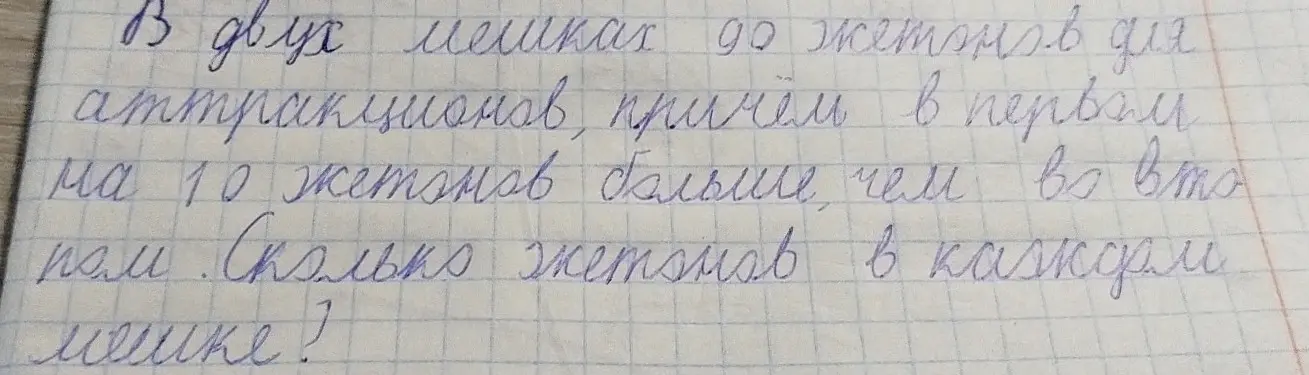 В двух мешках 90 жетонов для
аттракционов, причём в первом
на 10 жетонов больше, чем во вто
ром. Сколько жетонов в каждом
мешке?